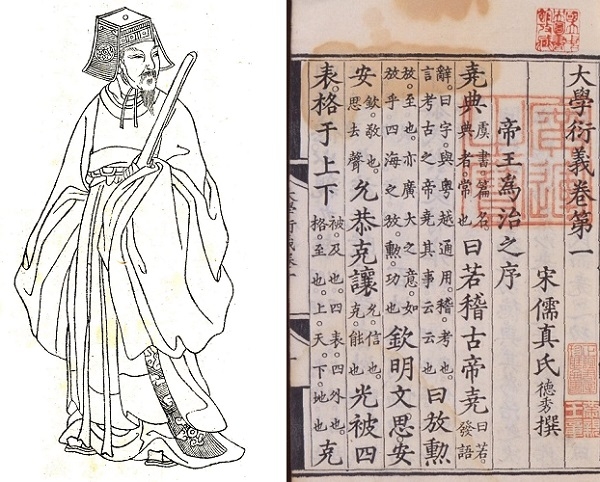 大學衍義卷第一
宋儒真氏德秀撰
帝王爲治之序
堯典虞書篇名。典者。常也曰若稽古帝堯曰若。發語
辭。曰字與粵越通用。稽。考也。言考古之帝堯其事云云也曰放勳
放。至也。亦廣大之意。如放乎四海之放。勳。功也欽明文思安
安欽。敬也。思去聲允恭克讓允。信也。克。能也光被四
表。格于上下被。及也。四表。四外也。格。至也。上。天。下。地也克